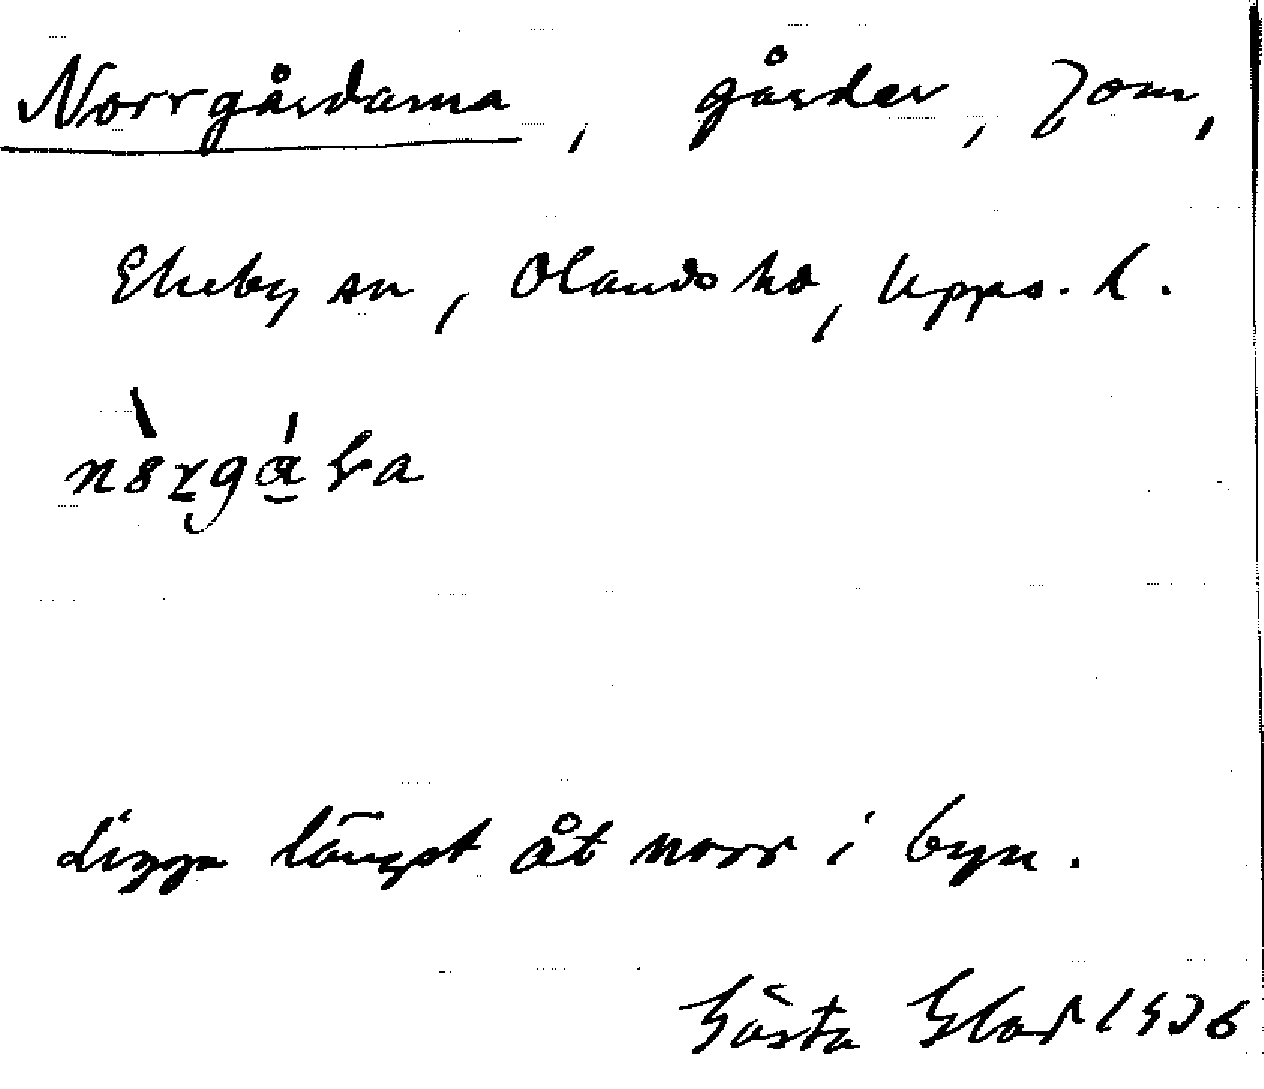 Norrgårdarna, gårder, Jom,
Ekeby sn, Olands hd, Upps. l.
Ligga längst åt norr i byn.
Gösta 1936